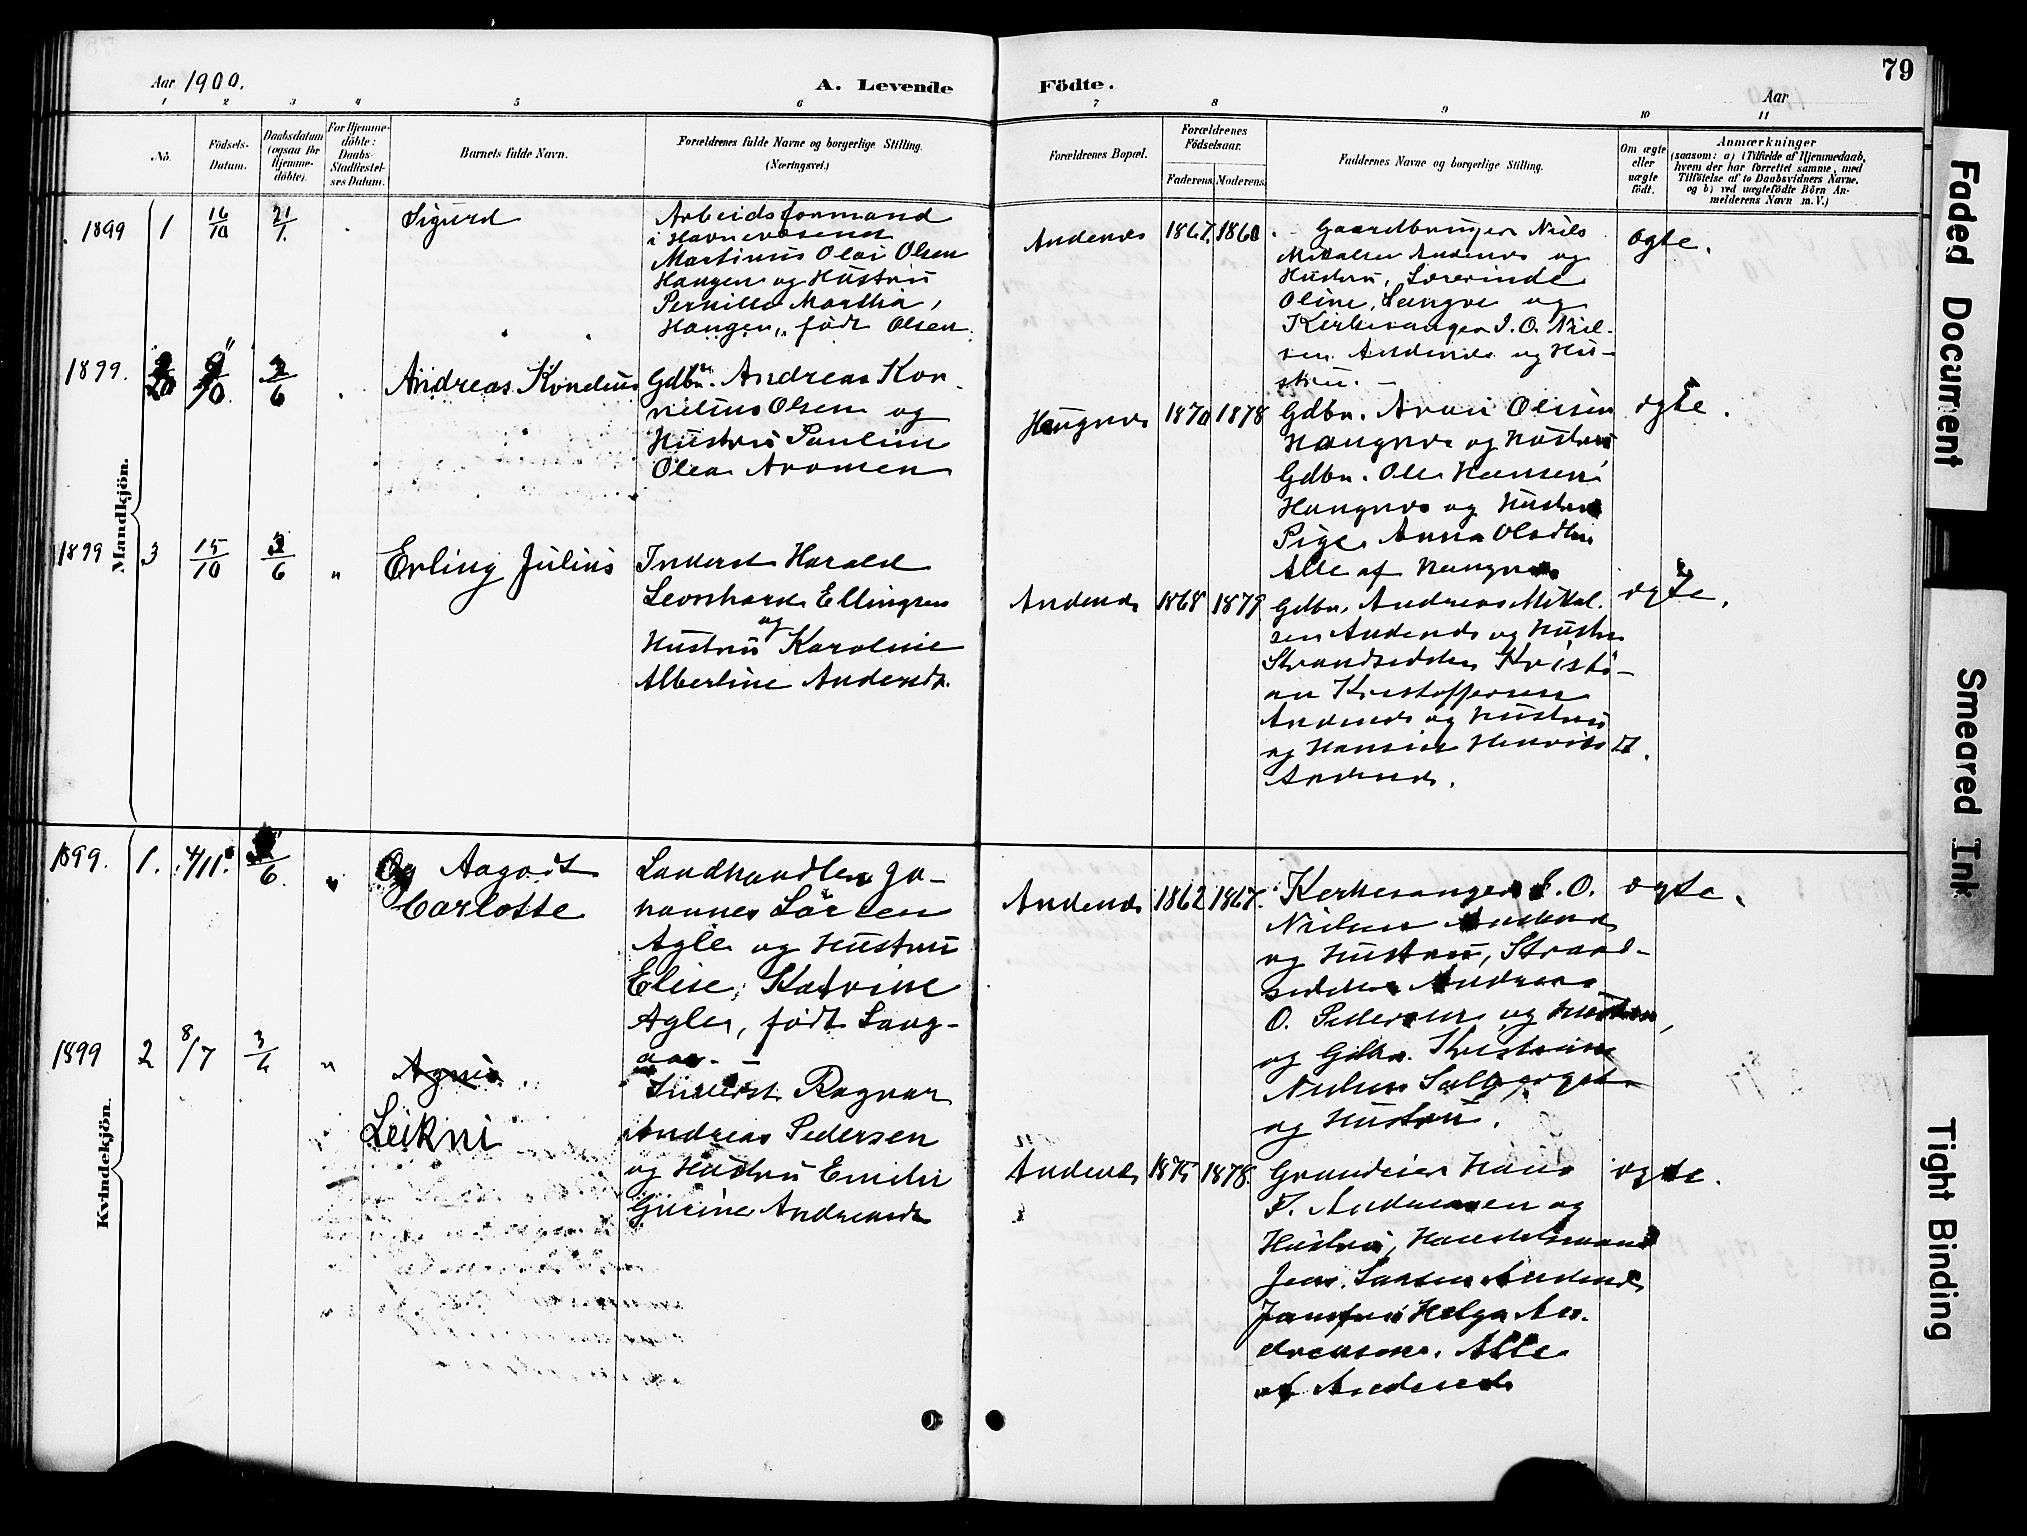 79
Aar 1900.
A. Levende
Födte.
Aar
1 2 3 4 5 6 7 8 9 10 11
No.
Födsels-
Datum.
Daabsdatum
(ogsaa for
Hjemme-
döbte).
For Hjemme-
döbte:
Daabs-
Stadfæstel-
ses Datum.
Barnets fulde Navn.
Forældrenes fulde Navne og borgerlige Stilling.
(Næringsvei.)
Forældrenes Bopæl.
Forældrenes
Födselsaar.
Faderens. Moderens.
Faddernes Navne og borgerlige Stilling.
Om ægte
eller
uægte
födt.
Anmærkninger
(saasom: a) i Tilfælde af Hjemmedaab,
hvem der har forrettet samme, med
Tilföielse af to Daabsvidners Navne,
og b) ved uægtefödte Börn An-
melderens Navn m. V.)
Mandkjön.
1899 1 16/10 21/1 Sigurd
Arbeidsformand
i Havnevæsenet
Martinus Olai Olsen
Haugen og Hustru
Pernille Martha
Haugen, født Olsen.
Andenes 1867. 1860
Gaardbruger Niels
Mikalsen Andenes og
Hustru, Lærerinde
Oline Langve og
Kirkesanger I. O. Niel-
sen Andenes og Hu-
stru.
ægte.
1899. 9/10 3/6 Andreas Konelius
Gdbr. Andreas Kor-
nelius Olsen og
Hustru Pauline
Olea Aronsen
Haugnes 1870 1878
Gdbr. Aron Olsen
Haugnes og Hustru
Gdbr. Ole Hansen
Haugnes og Hustru
Pige Anna
Alle af Haugnes
ægte.
1899 3 15/10 3/6 " Erling Julius
Inderst Harald
Leonhard Ellingsen
og
Hustru Karoline
Albertine Andenes.
Andenes 1868 1879
Gdbr. Andreas Mikal-
sen Andenes og Hustru
Strandsidder Kristi-
an Kristoffersen
Andenes og Hustru
og Hansine
Andenes.
ægte.
Kvindekjön.
1899. 1. 4/11. /6. " Aagodt
Carlotte
Landhandler Jo-
hannes Larsen
Agle og Hustru
Elise Katrine
Agle, født Laug-
aas.
Andenes 1862 1867.
Kirkesanger I. O.
Nielsen Andenes
og Hustru, Strand-
sidder Andreas
O. Pedersen og Hustru,
og Gdbr. Kristian
Nielsen
og Hustru.
ægte.
1899 2 8/7 3/6 " Agnes
Leikni
Inderst Ragnar
Andreas Pedersen
og Hustru Emilie
Gusine Andenes
Andenes 1875 1878.
Grundeier Hans
T. Andreassen og
Hustru, Handelsmand
Jens Larsen Andenes
Jomfru Helga An-
dreassen. Alle
af Andenes
ægte.
Faded Document
Smeared Ink
Tight Binding